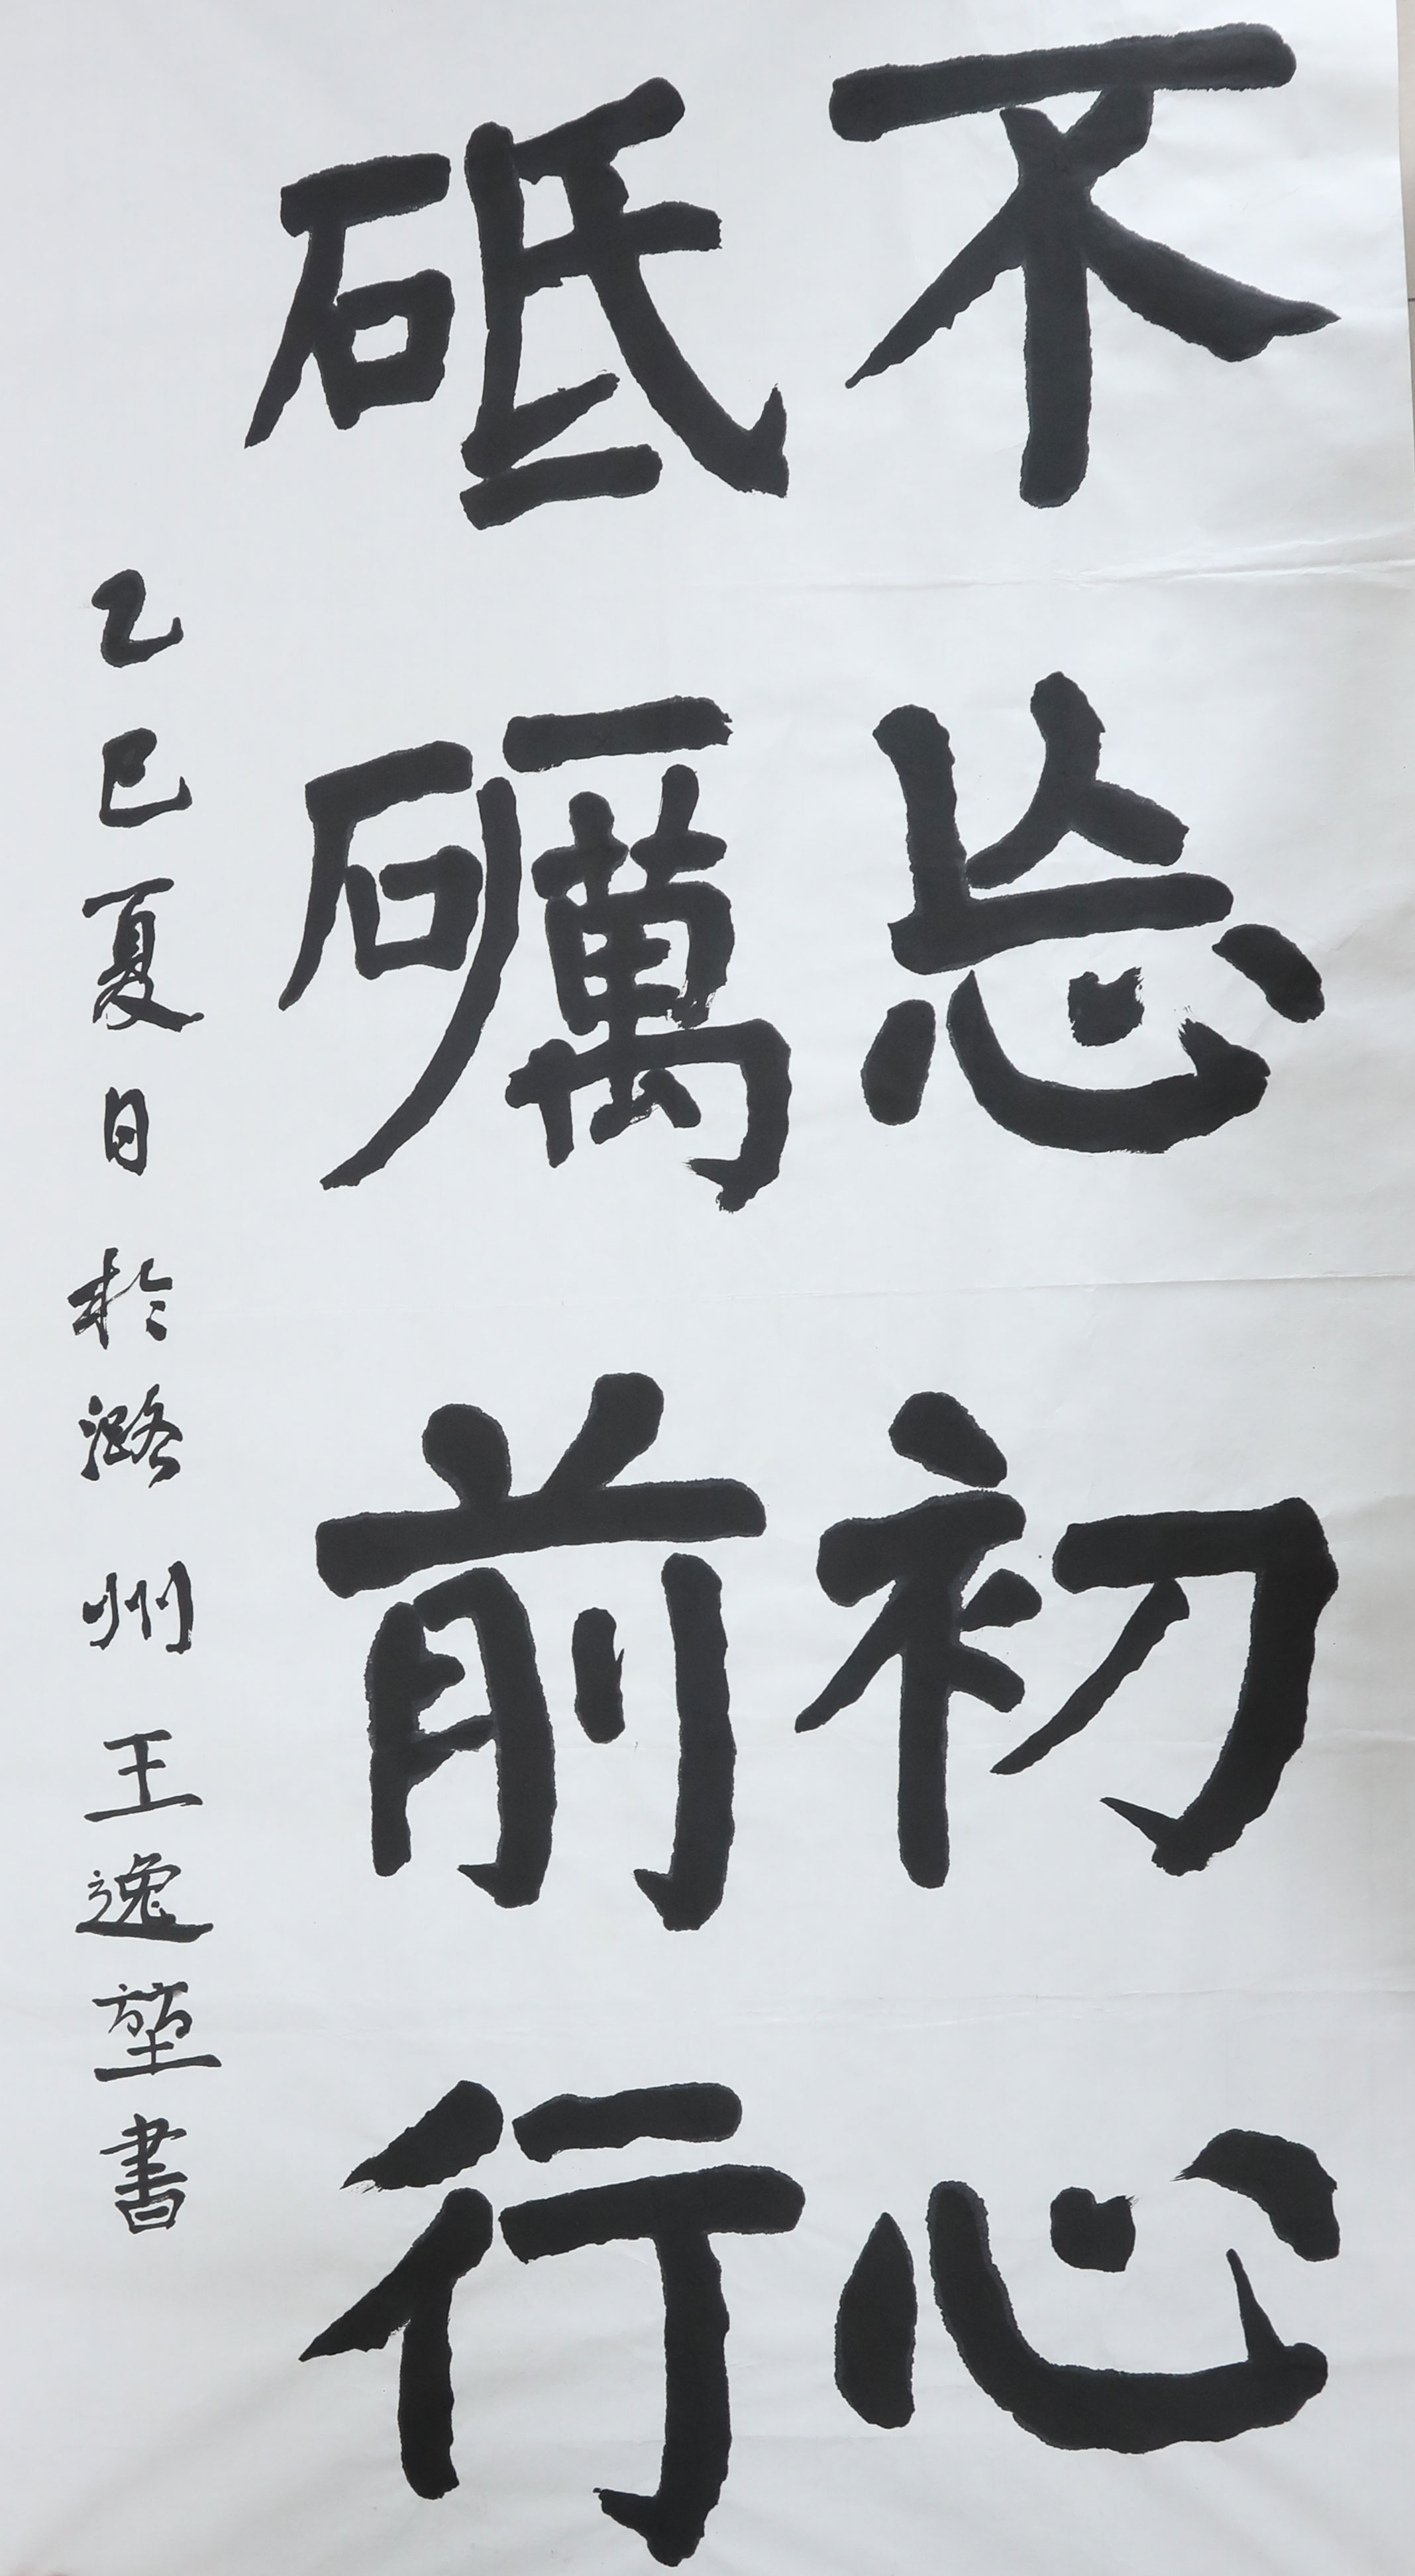 不忘初心
砥礪前行
乙巳夏日於潞州王逸堃書